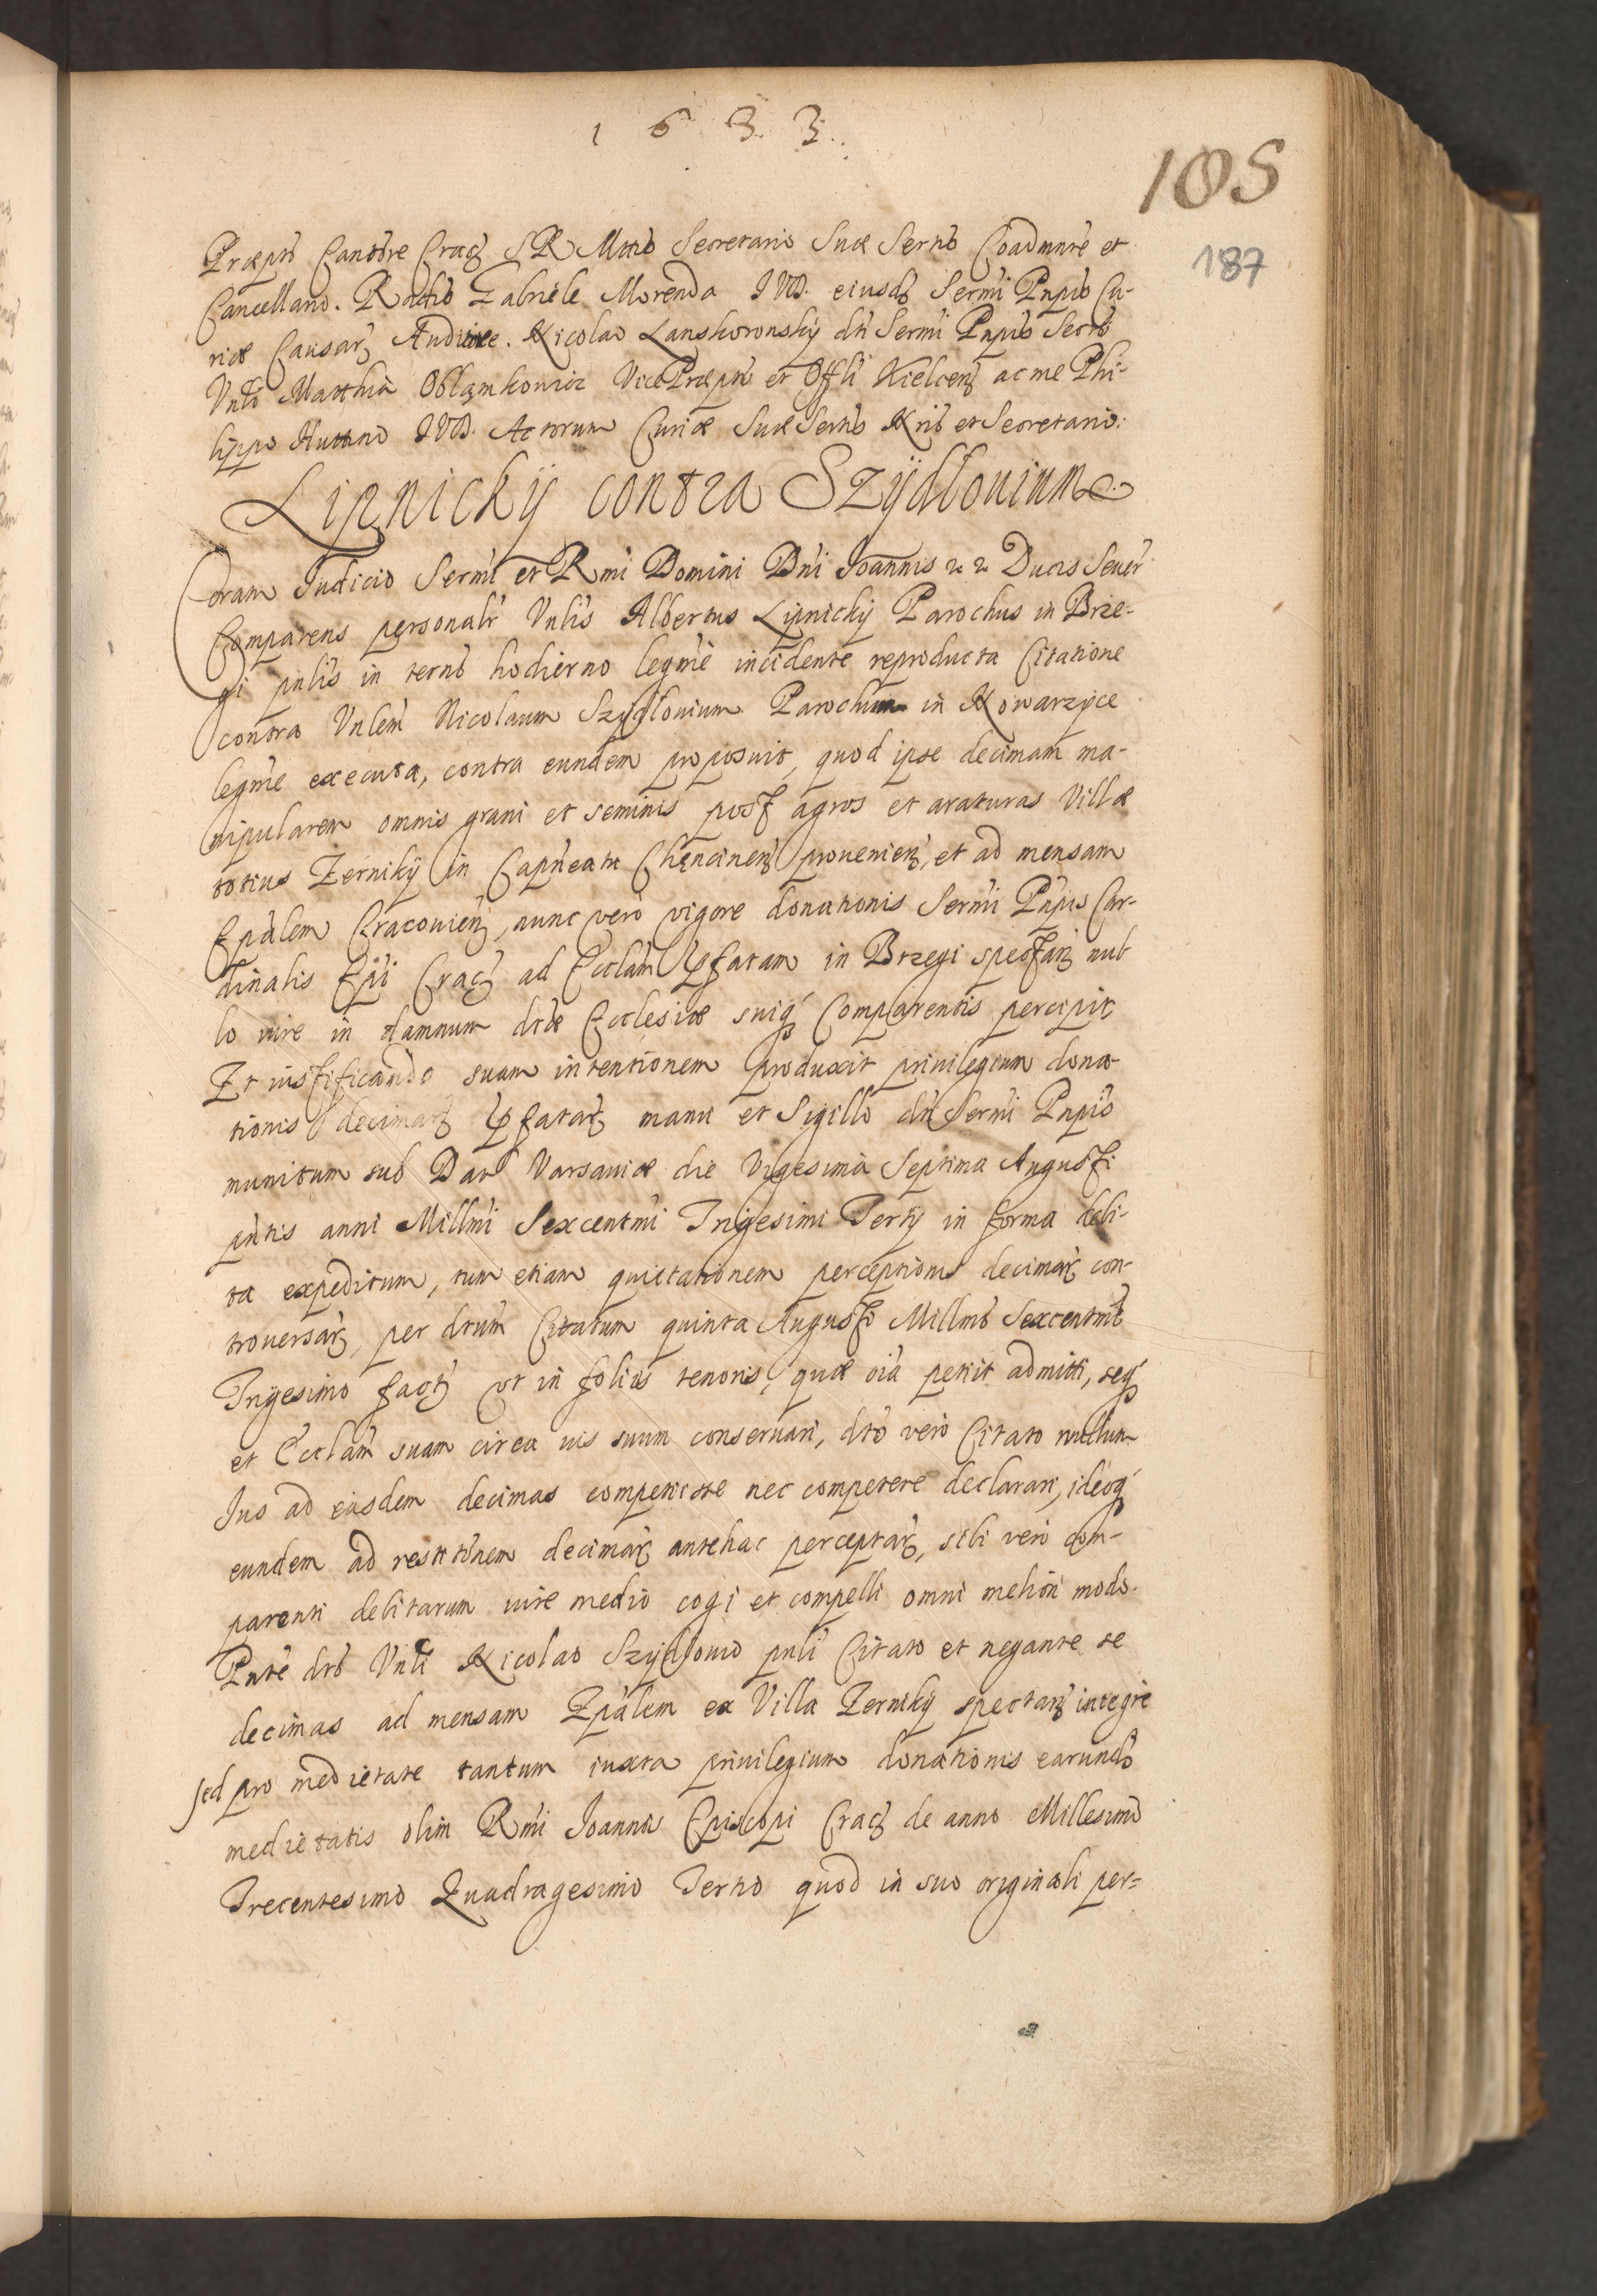 1633.
105
187
Præpto Cantore Crac S R Mttis Secretario Suæ Sertis Coadiutre et
Cancellario. Radio Gabriele Morenda IVD. eiusdo Sermi Pnpis Cu-
riæ Causar Auditore. Nicolao Lanskoronskÿ dti Sermi Pnpis Secrio
Vnli Matthia Obłąmkowic Vice Præpto et Offli Kielcen ac me Phi-
lippo Huttino IVD. Actorum Curiæ Suæ Sertis Nrio et Secretario.
Lipnickÿ contra Szÿdlouium
Coram Iudicio Sermi et Rmi Domini Dni Ioannis &c &c Ducis Seuer
Comparens personalr Vnlis Albertus Lipnickÿ Parochus in Brze-
gi pnlis in terno hodierno legme incidente reproducta Citatione
contra Vnlem Nicolaum Szydlouium Parochum in Kowarzyce
legme executa, contra eundem proposuit, quod ipse decimam ma-
nipularem omnis grani et seminis post agros et araturas Villæ
totius Zernikÿ in Capneatu Chęncinen prouenien, et ad mensam
Epalem Cracouien, nunc vero vigore donationis Sermi Pnpis Car-
dinalis Epi Crac ad Ecclam pfatam in Brzegi spectan nul
lo iure in damnum dtæ Ecclesiæ suiq Comparentis percipit
Et iustificando suam intentionem produxit priuilegium dona-
tionis decimar pfatar manu et Sigillo dti Sermi Pnpis
munitum sub Dat Varsauiæ die Vigesima Septima Augusti
pntis anni Millmi Sexcentmi Trigesimi Tertÿ in forma debi-
ta expeditum, tum etiam quietationem perceptionis decimar con-
trouersar, per dtum Citatum quinta Augusti Millmo Sexcentmo
Trigesimo fact vt in foliis tenoris, quæ oia petiit admitti, seq
et Ecclam suam circa ius suum conseruari, dto vero Citato nullum
Ius ad easdem decimas competiisse nec competere declarari, ideoq
eundem ad restitonem decimar antehac perceptar, sibi vero com-
parenti debitarum iure medio cogi et compelli omni meliori modo.
Pnte dto Vnli Nicolao Szydlouio pnli Citato et negante se
decimas ad mensam Epalem ex Villa Zernikÿ spectan integre
sed pro medietate tantum iuxta priuilegium donationis earundo
medietatis olim Rmi Ioannis Episcopi Crac de anno Millesimo
Trecentesimo Quadragesimo Tertio quod in suo originali per=